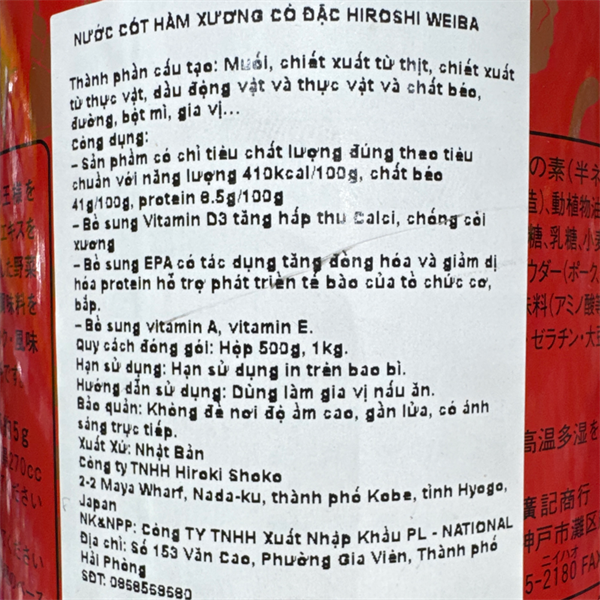 NƯỚC CỐT HẦM XƯƠNG CÔ ĐẶC HIROSHI WEIBA
Thành phần cấu tạo: Muối, chiết xuất từ thịt, chiết xuất
từ thực vật, dầu động vật và thực vật và chất béo,
đường, bột mì, gia vị...
Công dụng:
- Sản phẩm có chỉ tiêu chất lượng đúng theo tiêu
chuẩn với năng lượng 410kcal/100g, chất béo
41g/100g, protein 8.5g/100g
- Bổ sung Vitamin D3 tăng hấp thu Calci, chống còi
xương
- Bổ sung EPA có tác dụng tăng đồng hóa và giảm dị
hóa protein hỗ trợ phát triển tế bào của tổ chức cơ,
bắp.
- Bổ sung vitamin A, vitamin E.
Quy cách đóng gói: Hộp 500g, 1kg.
Hạn sử dụng: Hạn sử dụng in trên bao bì.
Hướng dẫn sử dụng: Dùng làm gia vị nấu ăn.
Bảo quản: Không để nơi độ ẩm cao, gần lửa, có ánh
sáng trực tiếp.
Xuất Xứ: Nhật Bản
Công ty TNHH Hiroki Shoko
2-2 Maya Wharf, Nada-ku, thành phố Kobe, tỉnh Hyogo,
Japan
NK&NPP: Công TY TNHH Xuất Nhập Khẩu PL - NATIONAL
Địa chỉ: Số 153 Văn Cao, Phường Gia Viên, Thành phố
Hải Phòng
SĐT: 0858569680
の素(半ネ
造)、動植物油
糖、乳糖、小麦
ウダー(ポーク、
味料(アミノ酸等
・ゼラチン・大豆
高温多湿を
廣記商行
神戸市灘区
ニイハオ
5-2180 FAX
王福を
エキスを
た野菜
調味料を
・風味
です。
270cc
ださい